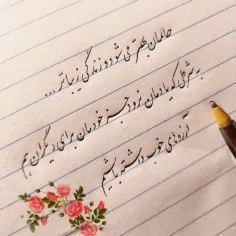 حالمان بهتر می شود و زندگی زیباتر ...
به شرطی که یادمان نرود جز خودمان برای دیگران هم
آرزوهای خوب داشته باشیم